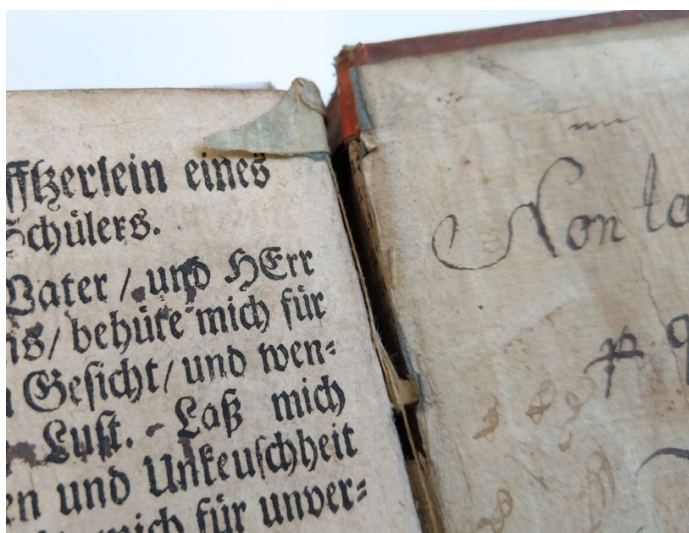 fftzerlein eines
Schülers.
Vater / und HErr
ns / behüte mich für
Gesicht / und wen⸗
Lust. Laß mich
en und Unkeuschheit
mich für unver⸗
Non
p.